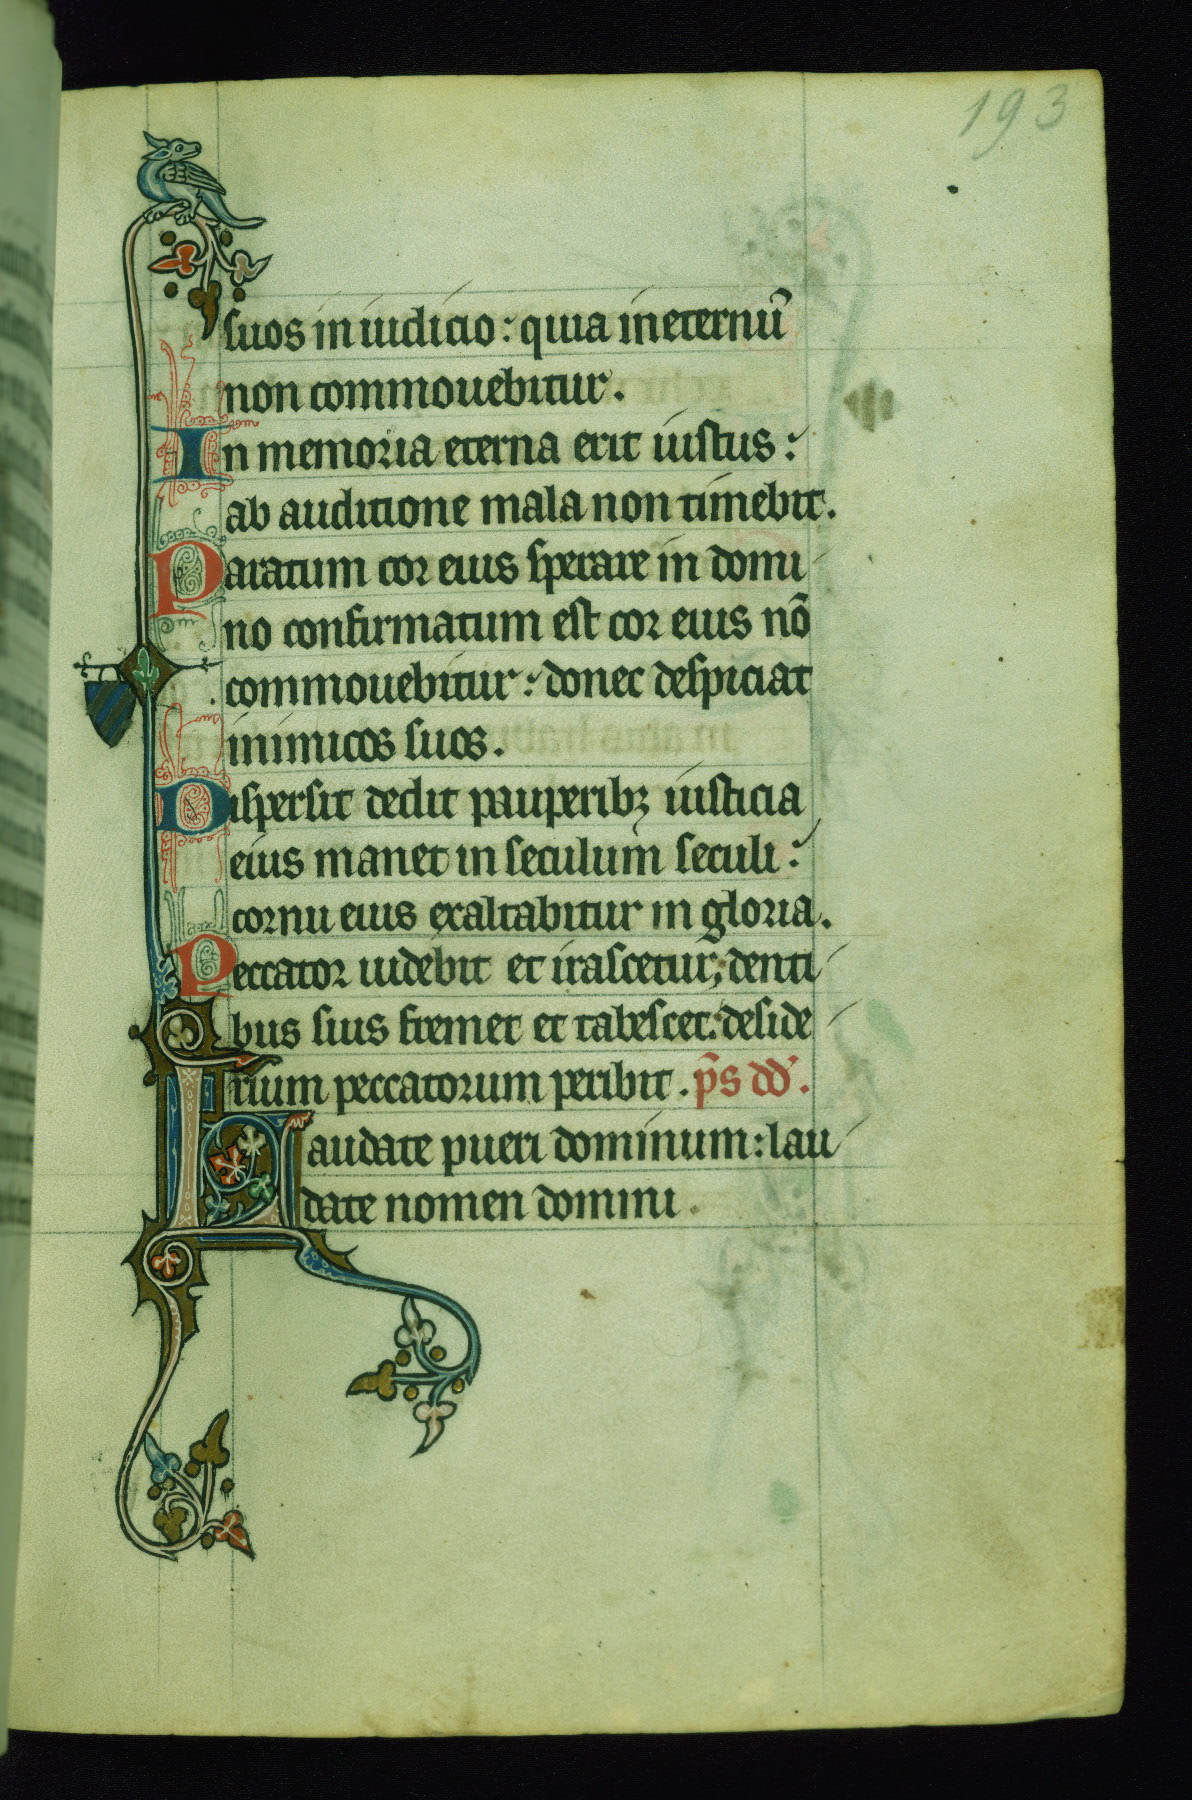 193
suos in iudicio: quia ineternū
non commouebitur.
In memoria eterna erit iustus:
ab auditione mala non timebit.
Paratum cor eius sperare in domi
no confirmatum est cor eius nō
commouebitur: donec despiciat
inimicos suos.
Dispersit dedit pauperibꝫ iusticia
eius manet in seculum seculi:
cornu eius exaltabitur in gloria.
Peccator uidebit et irascetur; denti
bus suis fremet et tabescet: deside
rium peccatorum peribit. p̄s dd'.
Laudate pueri dominum: lau
date nomen domini.